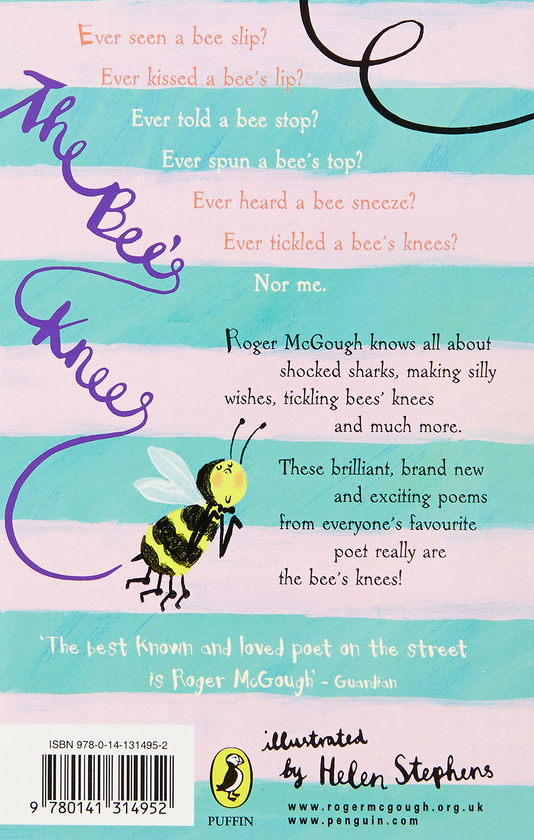 Ever seen a bee slip?
Ever kissed a bee's lip?
Ever told a bee stop?
Ever spun a bee's top?
Ever heard a bee sneeze?
Ever tickled a bee's knees?
Nor me.
The
Bee's
Knees
Roger McGough knows all about
shocked sharks, making silly
wishes, tickling bees' knees
and much more.
These brilliant, brand new
and exciting poems
from everyone's favourite
poet really are
the bee's knees!
'The best known and loved poet on the street
is Roger McGough' – Guardian
ISBN 978-0-14-131495-2
9 780141 314952
PUFFIN
illustrated
by Helen Stephens
www.rogermcgough.org.uk
www.penguin.com